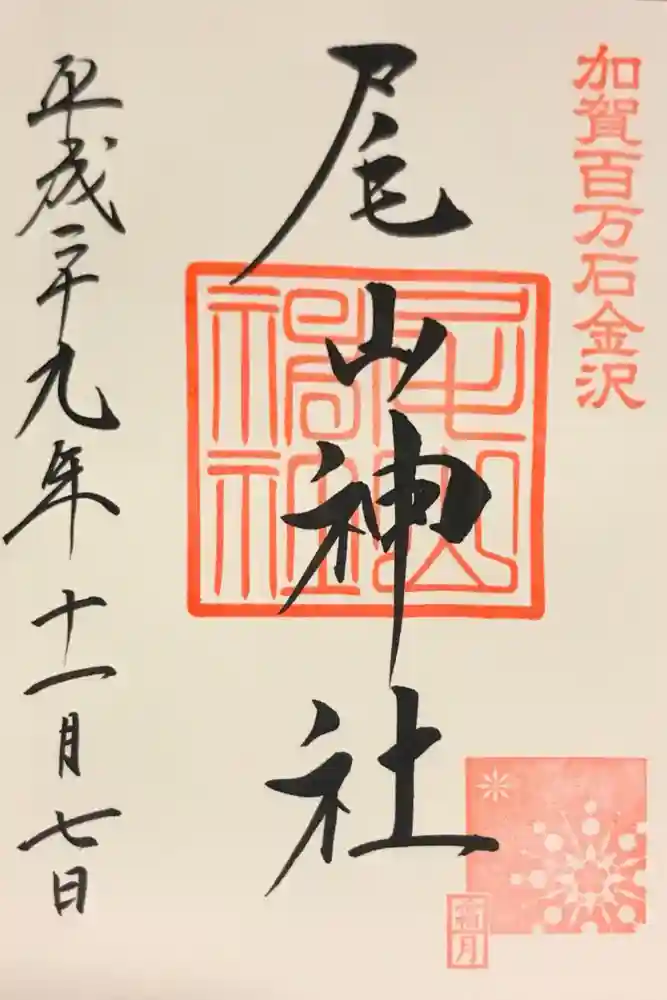 加賀百万石金沢
尾山神社
尾山神社
平成二十九年十一月七日
霜月